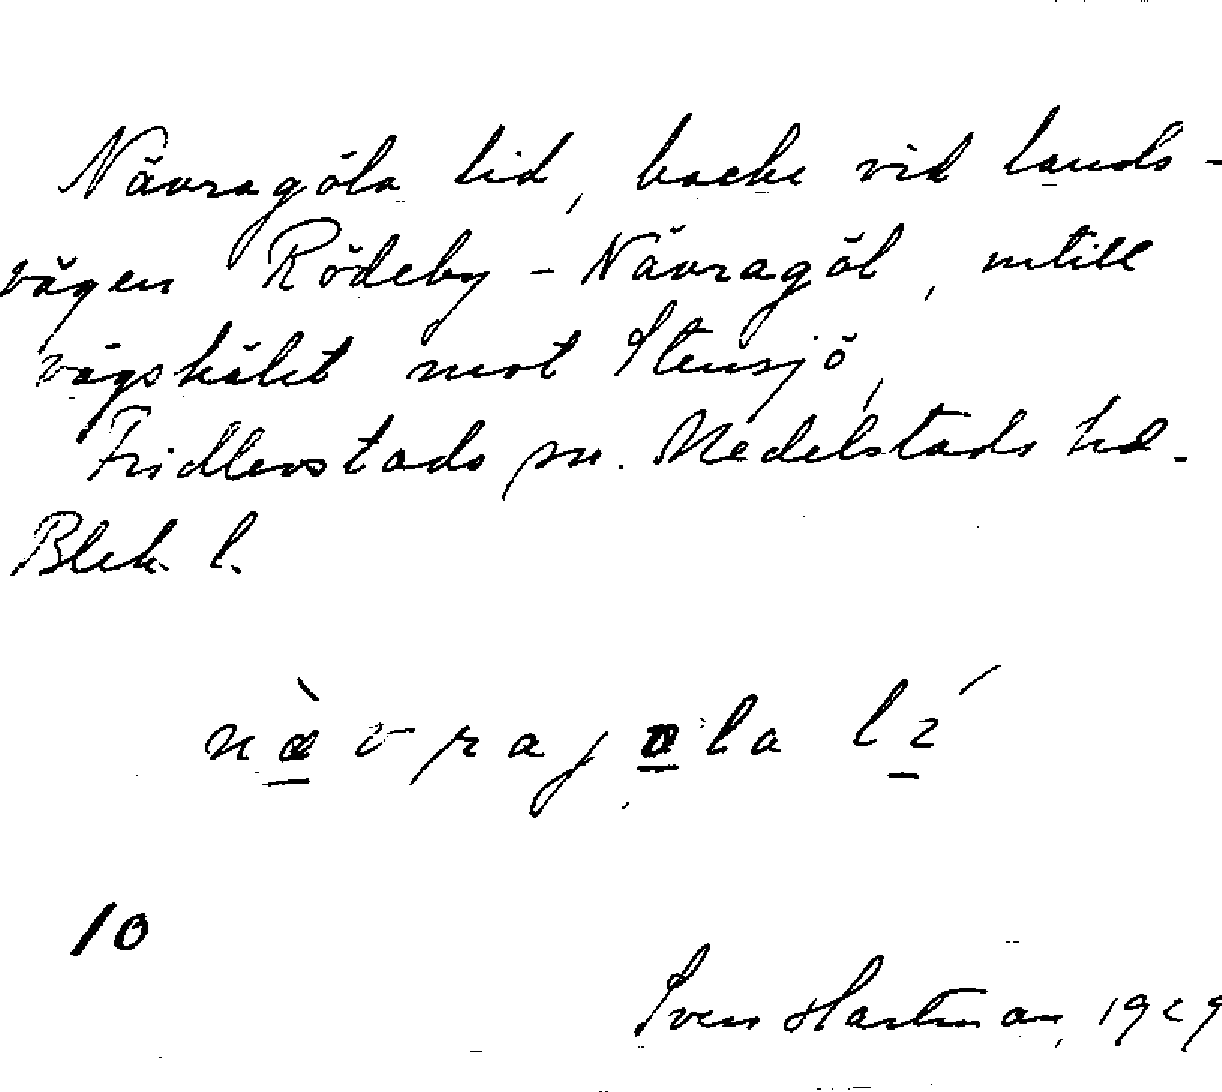 Nävragöla lid, backe vid lands-
vägen Rödeby - Nävragöl, intill
vägskälet mot Stensjö,
Fridlevstads sn. Medelstads hd.
Blek. l.
nævrajola lí
10
Sven Hartman, 1929